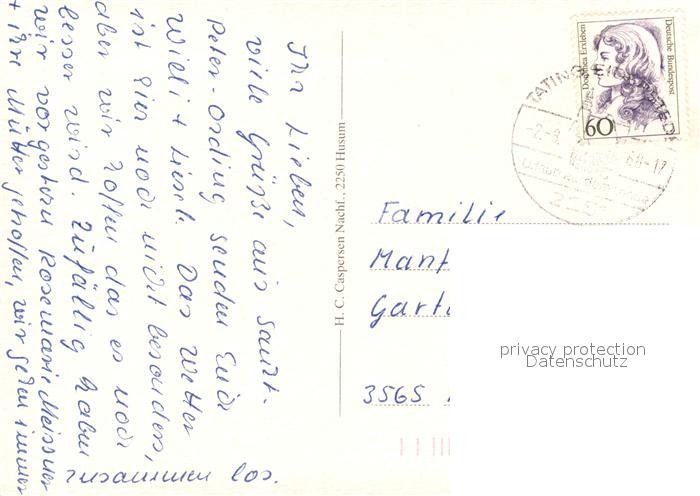 Ihr Lieben,
viele Grüße aus Sankt.
Peter-Ording senden Euch
Willi + Liesel. Das Wetter
ist hier noch nicht besonders,
aber wir hoffen das es noch
besser wird. Zufällig haben
wir vorgestern Rosemarie Meissner
+ ihre Mutter getroffen, wir gehen immer
zusammen los.
H. C. Caspersen Nachf., 2250 Husum
Dorothea Erxleben
Deutsche Bundespost
60
TATING
-2.-8.
-17
Familie
Manf
Gart
3565
privacy protection
Datenschutz